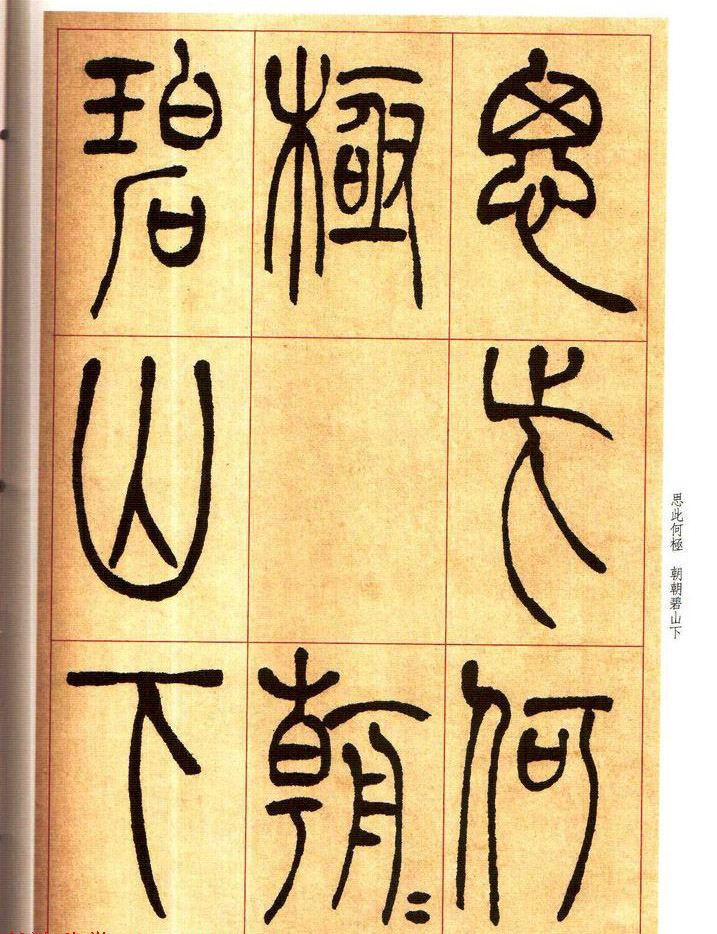 思此何極　朝朝碧山下
思此何
極　朝〻
碧山下